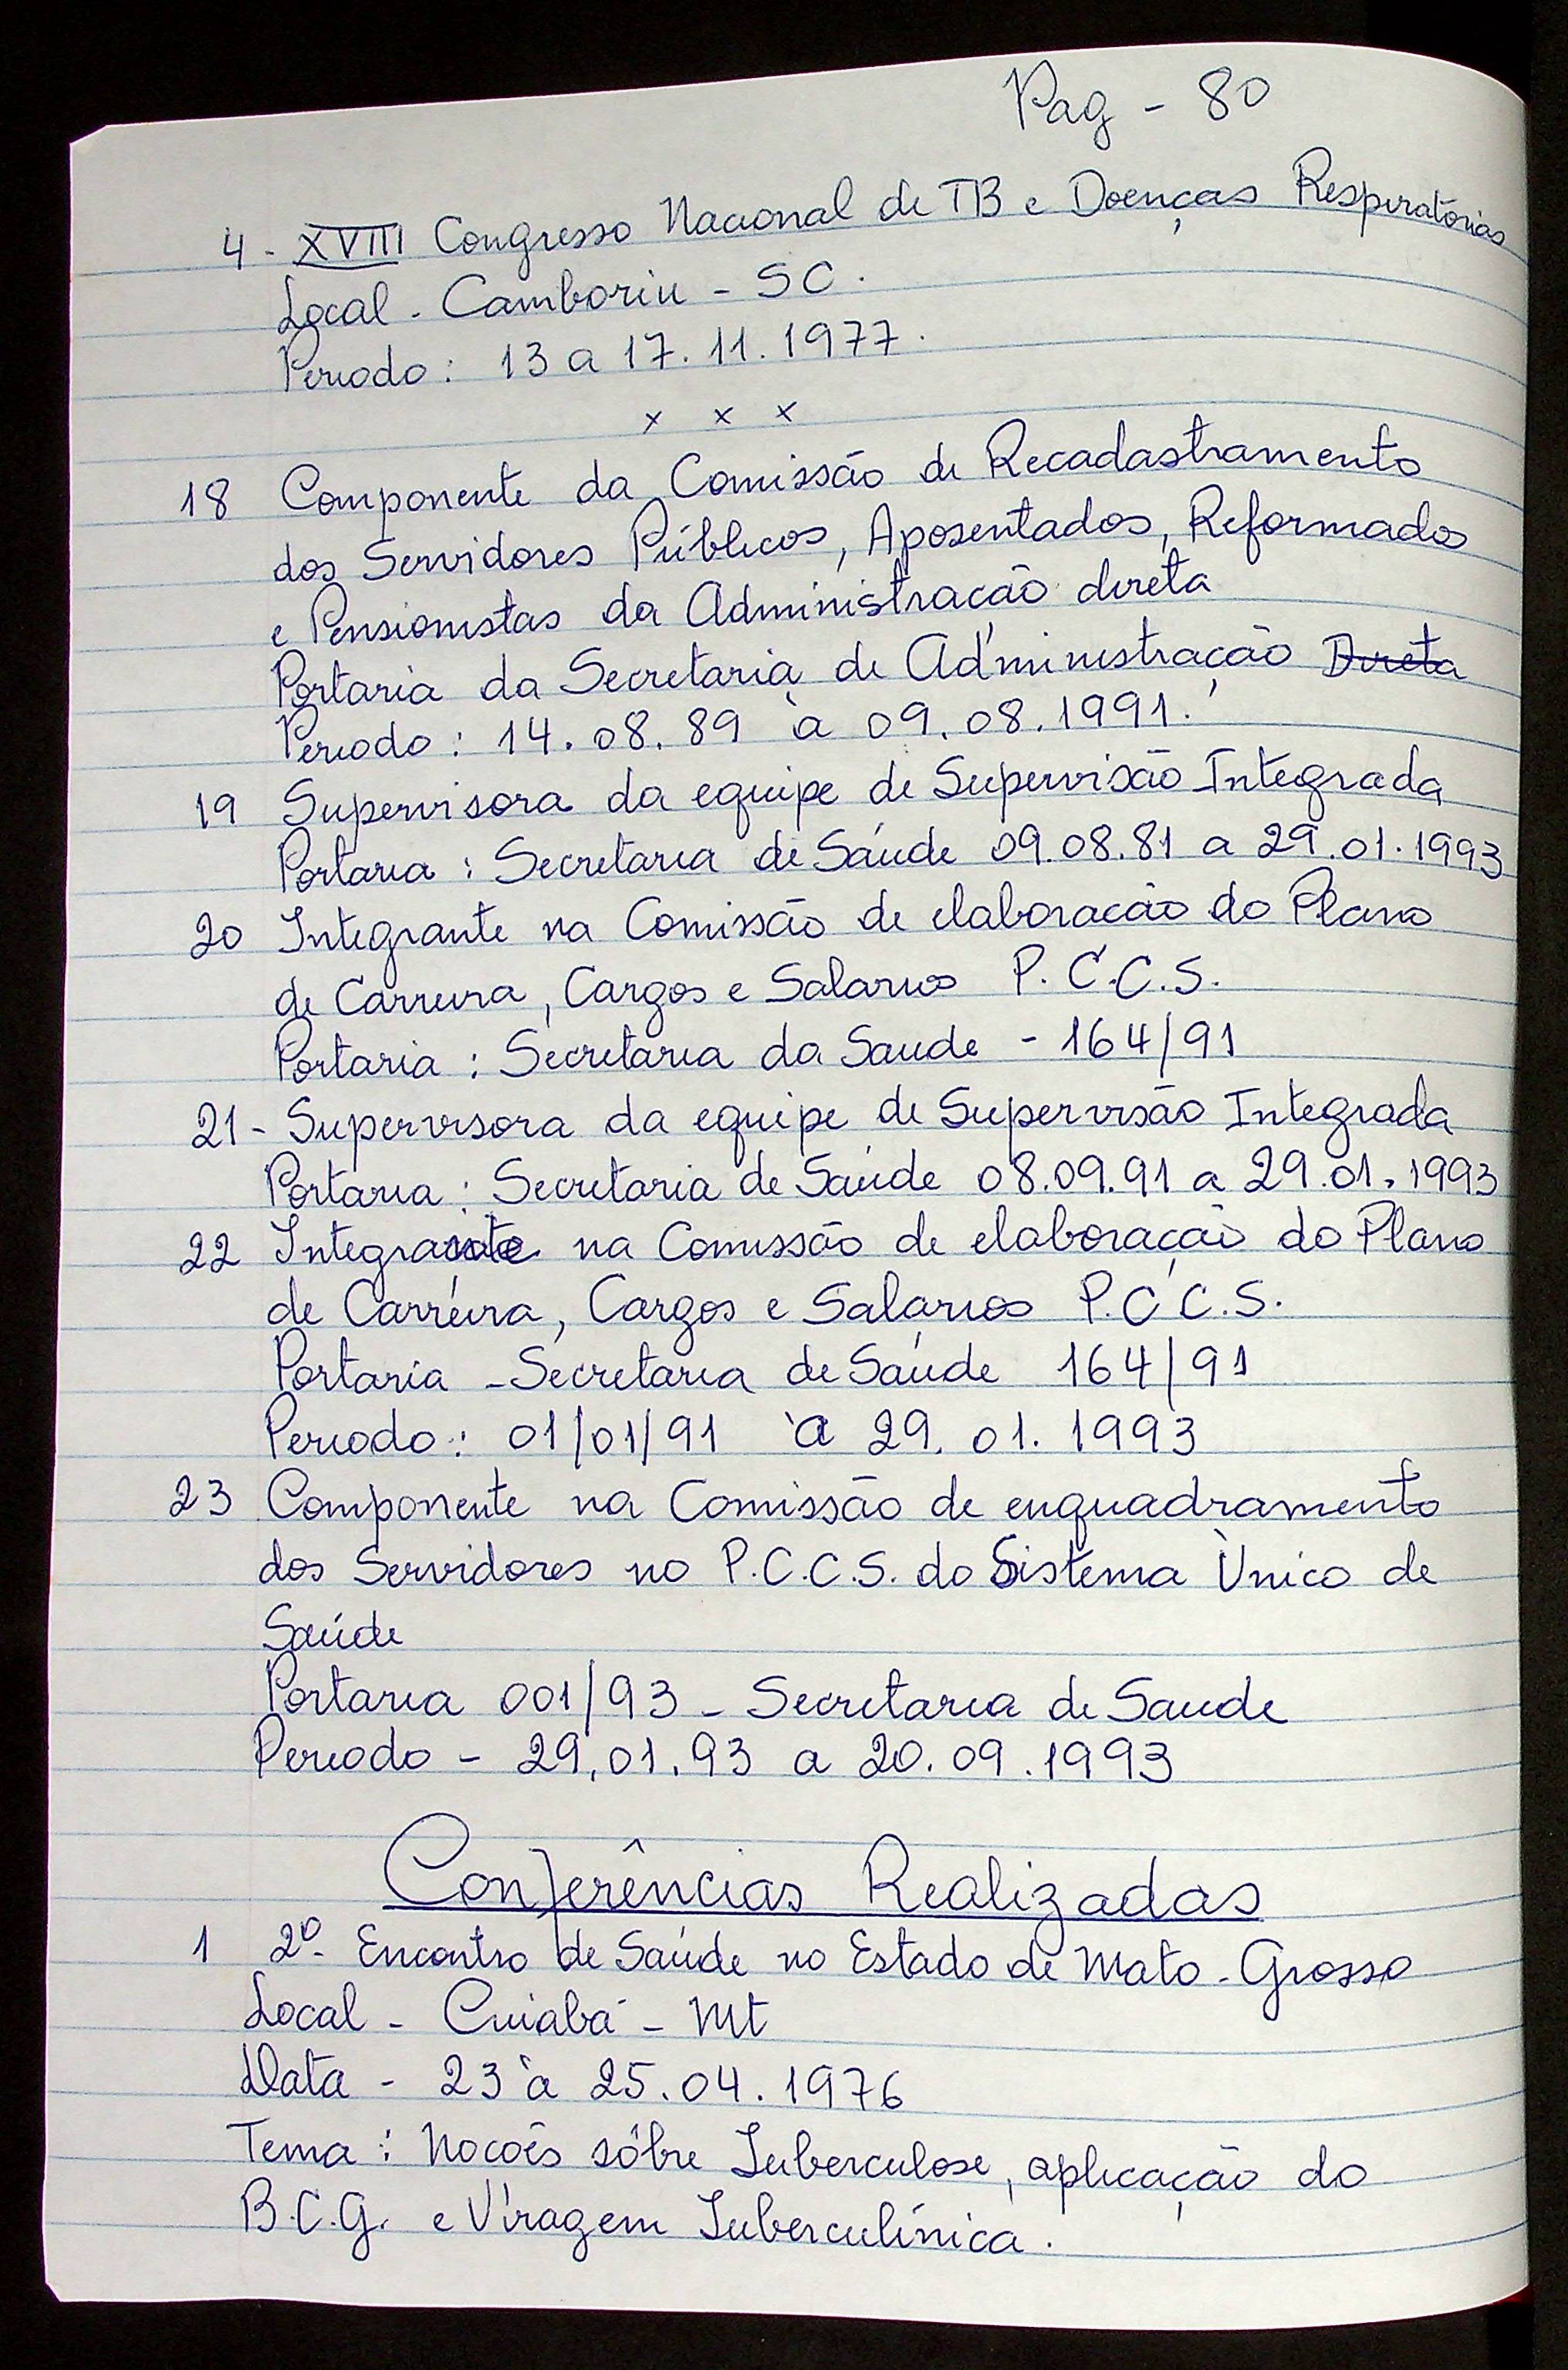 Pag - 80
4 - XVIII Congresso Nacional de TB e Doenças Respiratórias
Local - Camboriu - SC.
Periodo: 13 a 17.11.1977.
x x x
18 Componente da Comissão de Recadastramento
dos Servidores Públicos, Aposentados, Reformados
e Pensionistas da Administração direta
Portaria da Secretaria de Administração Direta
Periodo: 14.08.89 à 09.08.1991.
19 Supervisora da equipe de Supervisão Integrada
Portaria: Secretaria de Saúde 09.08.81 a 29.01.1993
20 Integrante na Comissão de elaboracão do Plano
de Carreira, Cargos e Salarios P.C.C.S.
Portaria: Secretaria da Saude - 164/91
21 - Supervisora da equipe de Supervisão Integrada
Portaria: Secretaria de Saúde 08.09.91 a 29.01.1993
22 Integrante na Comissão de elaboração do Plano
de Carreira, Cargos e Salários P.C.C.S.
Portaria - Secretaria de Saúde 164/91
Periodo: 01/01/91 à 29.01.1993
23 Componente na Comissão de enquadramento
dos Servidores no P.C.C.S. do Sistema Ùnico de
Saúde
Portaria 001/93 - Secretaria de Saude
Periodo - 29.01.93 a 20.09.1993
Conferências Realizadas
1 2º Encontro de Saúde no Estado de Mato-Grosso
Local - Cuiabá - Mt
Data - 23 à 25.04.1976
Tema: Nocões sôbre Tuberculose, aplicação do
B.C.G. e Viragem Tuberculínica.